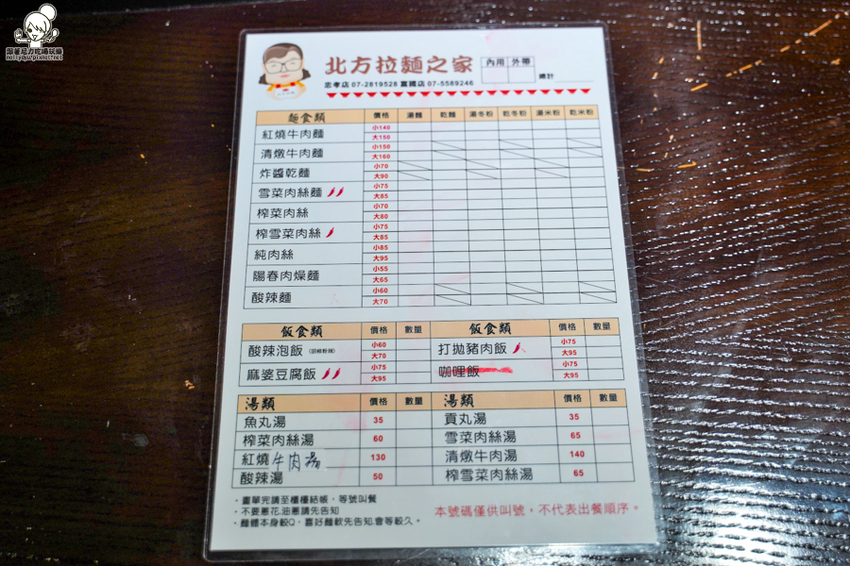 跟著尼力吃喝玩樂
nellydyu.pixnet.net
北方拉麵之家
內用 外帶
總計
忠孝店 07-2819528 富國店 07-5589246
麵食類 價格 湯麵 乾麵 湯冬粉 乾冬粉 湯米粉 乾米粉
紅燒牛肉麵 小140 大150
清燉牛肉麵 小150 大160
炸醬乾麵 小70 大90
雪菜肉絲麵 小75 大85
榨菜肉絲 小70 大80
榨雪菜肉絲 小75 大85
純肉絲 小85 大95
陽春肉燥麵 小55 大65
酸辣麵 小60 大70
飯食類 價格 數量 飯食類 價格 數量
酸辣泡飯 小60 大70 打拋豬肉飯 小75 大95
麻婆豆腐飯 小75 大95 咖哩飯 小75 大95
湯類 價格 數量 湯類 價格 數量
魚丸湯 35 貢丸湯 35
榨菜肉絲湯 60 雪菜肉絲湯 65
紅燒牛肉湯 130 清燉牛肉湯 140
酸辣湯 50 榨雪菜肉絲湯 65
．畫單完請至櫃檯結帳，等號叫餐
．不要蔥花.油蔥請先告知
．麵體本身較Q，喜好麵軟先告知.會等較久。
本號碼僅供叫號，不代表出餐順序。